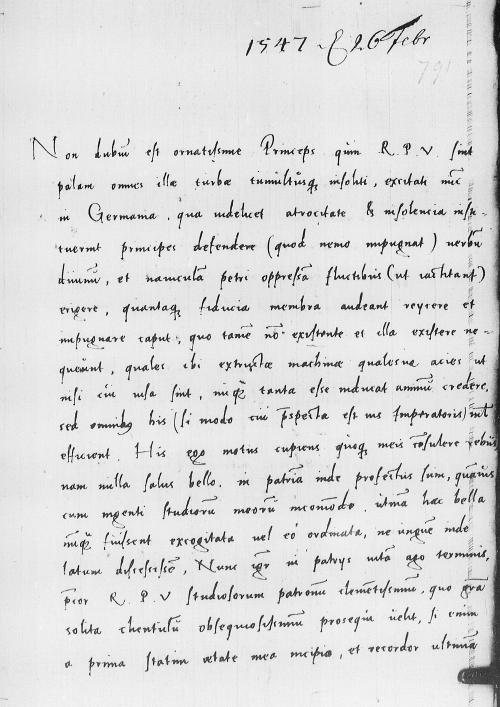 1547. E 26 Febr
791
Non dubiū est ornatissime Princeps quin R. P. V. sint
palam omnes illæ turbæ tumultusq; insoliti, excitati nūc
in Germania, qua videlicet atrocitate & insolencia insti-
tuerint principes defendere (quod nemo impugnat) verbū
divinū, et naviculā petri oppressā fluctibus (ut iactitant)
erigere, quantaq; fiducia membra audeant reijcere et
impugnare caput, quo tamē nō existente et illa existere ne-
queunt, quales ibi extructæ machinæ qualesve acies ut
nisi cui visa sint, nūq̄ tanta esse inducat animū credere,
sed omnibus his (si modo cui p̄specta est vis Imperatoris) nīl
efficient. His ego motus cupiens quoq; meis cōsulere rebus
nam nulla salus bello, in patriā inde profectus sum, quāvis
cum ingenti studiorū meorū incōmodo. utinā hæc bella
nūq̄ fuissent excogitata vel eo ordinata, ne unquē inde
latum discessissē, Nunc igr̄ in patrijs vitā ago terminis,
p̄cor R. P. V studiosorum patronū clemētissimū, quo gr̄a
solita clientulū obsequiosissimū prosequi velit, si enim
a prima statim ætate mea incipiā, et recordor ultimā